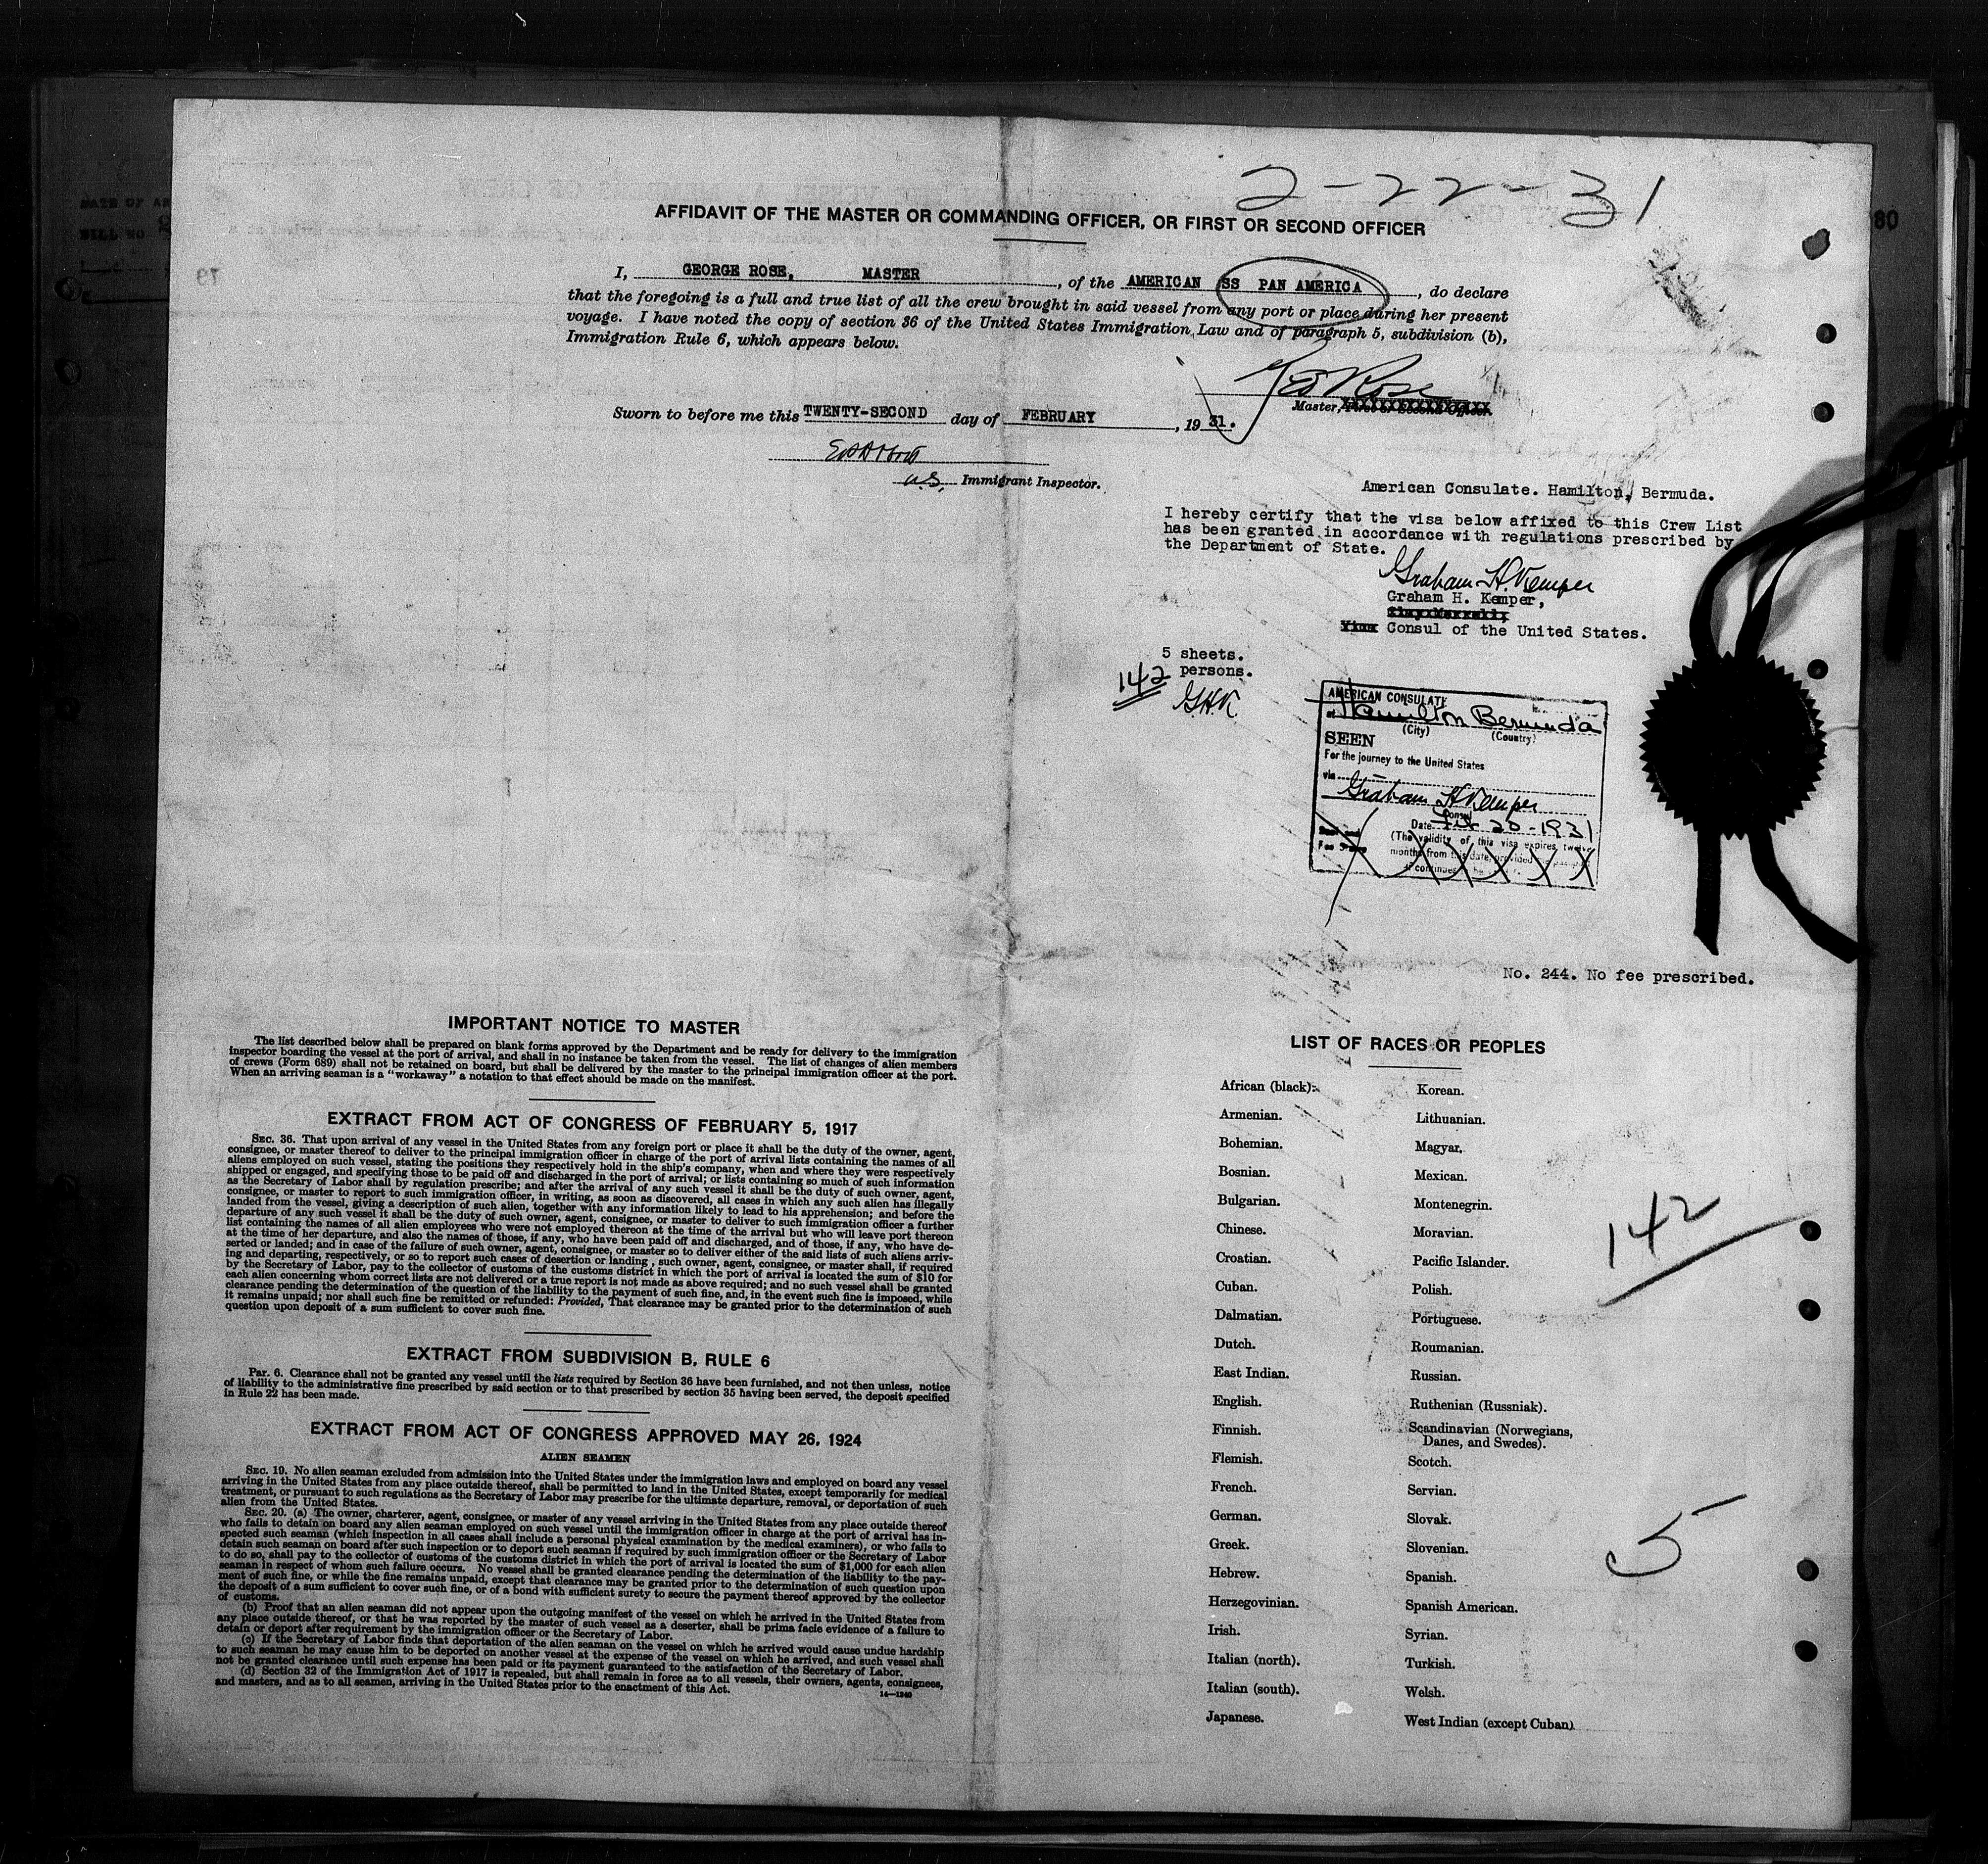 2-22-31
80
DATE OF AR
BILL NO
79
AFFIDAVIT OF THE MASTER OR COMMANDING OFFICER, OR FIRST OR SECOND OFFICER
I, GEORGE ROSE, MASTER, of the AMERICAN SS PAN AMERICA, do declare
that the foregoing is a full and true list of all the crew brought in said vessel from any port or place during her present
voyage. I have noted the copy of section 36 of the United States Immigration Law and of paragraph 5, subdivision (b),
Immigration Rule 6, which appears below.
Geo Rose
Master, First or Second Officer.
Sworn to before me this TWENTY-SECOND day of FEBRUARY, 19 31.
U.S. Immigrant Inspector.
American Consulate. Hamilton, Bermuda.
I hereby certify that the visa below affixed to this Crew List
has been granted in accordance with regulations prescribed by
the Department of State.
Graham H. Kemper
Graham H. Kemper,
Consul of the United States.
5 sheets.
142 persons.
G.H.K
AMERICAN CONSULATE
at Hamilton Bermuda
(City) (Country)
SEEN
For the journey to the United States
via
Graham H Kemper
Consul
Date Feb 20-1931
(The validity of this visa expires twelve
months from this date, provided
continues
Fee Stamp
No. 244. No fee prescribed.
IMPORTANT NOTICE TO MASTER
The list described below shall be prepared on blank forms approved by the Department and be ready for delivery to the immigration
inspector boarding the vessel at the port of arrival, and shall in no instance be taken from the vessel. The list of changes of alien members
of crews (Form 689) shall not be retained on board, but shall be delivered by the master to the principal immigration officer at the port.
When an arriving seaman is a "workaway" a notation to that effect should be made on the manifest.
EXTRACT FROM ACT OF CONGRESS OF FEBRUARY 5, 1917
SEC. 36. That upon arrival of any vessel in the United States from any foreign port or place it shall be the duty of the owner, agent,
consignee, or master thereof to deliver to the principal immigration officer in charge of the port of arrival lists containing the names of all
aliens employed on such vessel, stating the positions they respectively hold in the ship's company, when and where they were respectively
shipped or engaged, and specifying those to be paid off and discharged in the port of arrival; or lists containing so much of such information
as the Secretary of Labor shall by regulation prescribe; and after the arrival of any such vessel it shall be the duty of such owner, agent,
consignee, or master to report to such immigration officer, in writing, as soon as discovered, all cases in which any such alien has illegally
landed from the vessel, giving a description of such alien, together with any information likely to lead to his apprehension; and before the
departure of any such vessel it shall be the duty of such owner, agent, consignee, or master to deliver to such immigration officer a further
list containing the names of all alien employees who were not employed thereon at the time of the arrival but who will leave port thereon
at the time of her departure, and also the names of those, if any, who have been paid off and discharged, and of those, if any, who have de-
serted or landed; and in case of the failure of such owner, agent, consignee, or master so to deliver either of the said lists of such aliens arriv-
ing and departing, respectively, or so to report such cases of desertion or landing, such owner, agent, consignee, or master shall, if required
by the Secretary of Labor, pay to the collector of customs of the customs district in which the port of arrival is located the sum of $10 for
each alien concerning whom correct lists are not delivered or a true report is not made as above required; and no such vessel shall be granted
clearance pending the determination of the question of the liability to the payment of such fine, and, in the event such fine is imposed, while
it remains unpaid; nor shall such fine be remitted or refunded: Provided, That clearance may be granted prior to the determination of such
question upon deposit of a sum sufficient to cover such fine.
EXTRACT FROM SUBDIVISION B, RULE 6
Par. 6. Clearance shall not be granted any vessel until the lists required by Section 36 have been furnished, and not then unless, notice
of liability to the administrative fine prescribed by said section or to that prescribed by section 35 having been served, the deposit specified
in Rule 22 has been made.
EXTRACT FROM ACT OF CONGRESS APPROVED MAY 26, 1924
ALIEN SEAMEN
SEC. 19. No alien seaman excluded from admission into the United States under the immigration laws and employed on board any vessel
arriving in the United States from any place outside thereof, shall be permitted to land in the United States, except temporarily for medical
treatment, or pursuant to such regulations as the Secretary of Labor may prescribe for the ultimate departure, removal, or deportation of such
alien from the United States.
SEC. 20. (a) The owner, charterer, agent, consignee, or master of any vessel arriving in the United States from any place outside thereof
who fails to detain on board any alien seaman employed on such vessel until the immigration officer in charge at the port of arrival has in-
spected such seaman (which inspection in all cases shall include a personal physical examination by the medical examiners), or who fails to
detain such seaman on board after such inspection or to deport such seaman if required by such immigration officer or the Secretary of Labor
to do so, shall pay to the collector of customs of the customs district in which the port of arrival is located the sum of $1,000 for each alien
seaman in respect of whom such failure occurs. No vessel shall be granted clearance pending the determination of the liability to the pay-
ment of such fine, or while the fine remains unpaid, except that clearance may be granted prior to the determination of such question upon
the deposit of a sum sufficient to cover such fine, or of a bond with sufficient surety to secure the payment thereof approved by the collector
of customs.
(b) Proof that an alien seaman did not appear upon the outgoing manifest of the vessel on which he arrived in the United States from
any place outside thereof, or that he was reported by the master of such vessel as a deserter, shall be prima facie evidence of a failure to
detain or deport after requirement by the immigration officer or the Secretary of Labor.
(c) If the Secretary of Labor finds that deportation of the alien seaman on the vessel on which he arrived would cause undue hardship
to such seaman he may cause him to be deported on another vessel at the expense of the vessel on which he arrived, and such vessel shall
not be granted clearance until such expense has been paid or its payment guaranteed to the satisfaction of the Secretary of Labor.
(d) Section 32 of the Immigration Act of 1917 is repealed, but shall remain in force as to all vessels, their owners, agents, consignees,
and masters, and as to all seamen, arriving in the United States prior to the enactment of this Act.
14—1240
LIST OF RACES OR PEOPLES
African (black).
Armenian.
Bohemian.
Bosnian.
Bulgarian.
Chinese.
Croatian.
Cuban.
Dalmatian.
Dutch.
East Indian.
English.
Finnish.
Flemish.
French.
German.
Greek.
Hebrew.
Herzegovinian.
Irish.
Italian (north).
Italian (south).
Japanese.
Korean.
Lithuanian.
Magyar.
Mexican.
Montenegrin.
Moravian.
Pacific Islander.
Polish.
Portuguese.
Roumanian.
Russian.
Ruthenian (Russniak).
Scandinavian (Norwegians,
Danes, and Swedes).
Scotch.
Servian.
Slovak.
Slovenian.
Spanish.
Spanish American.
Syrian.
Turkish.
Welsh.
West Indian (except Cuban)
142
5